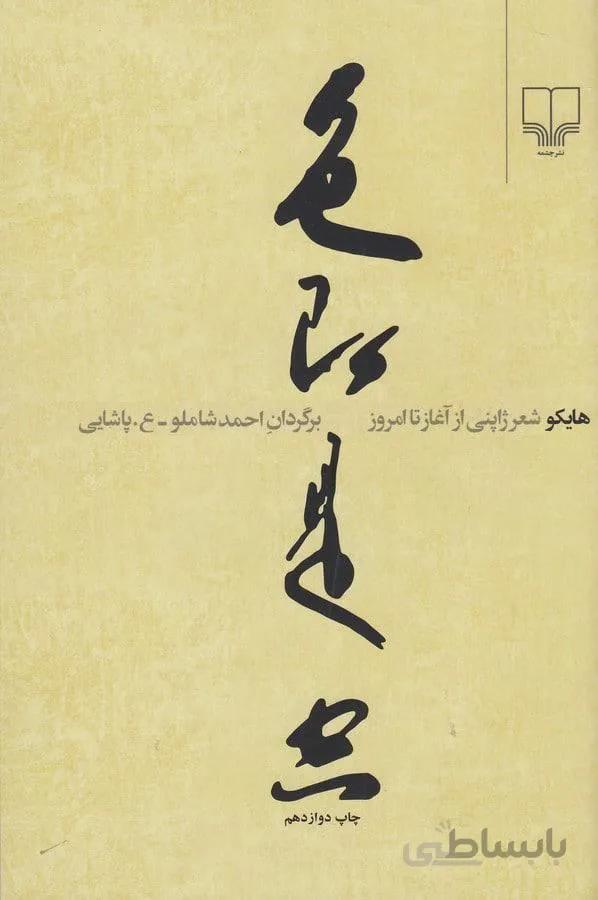 نشر چشمه
色即是空
هایکو شعر ژاپنی از آغاز تا امروز برگردانِ احمد شاملو - ع. پاشایی
چاپ دوازدهم
بابساطی